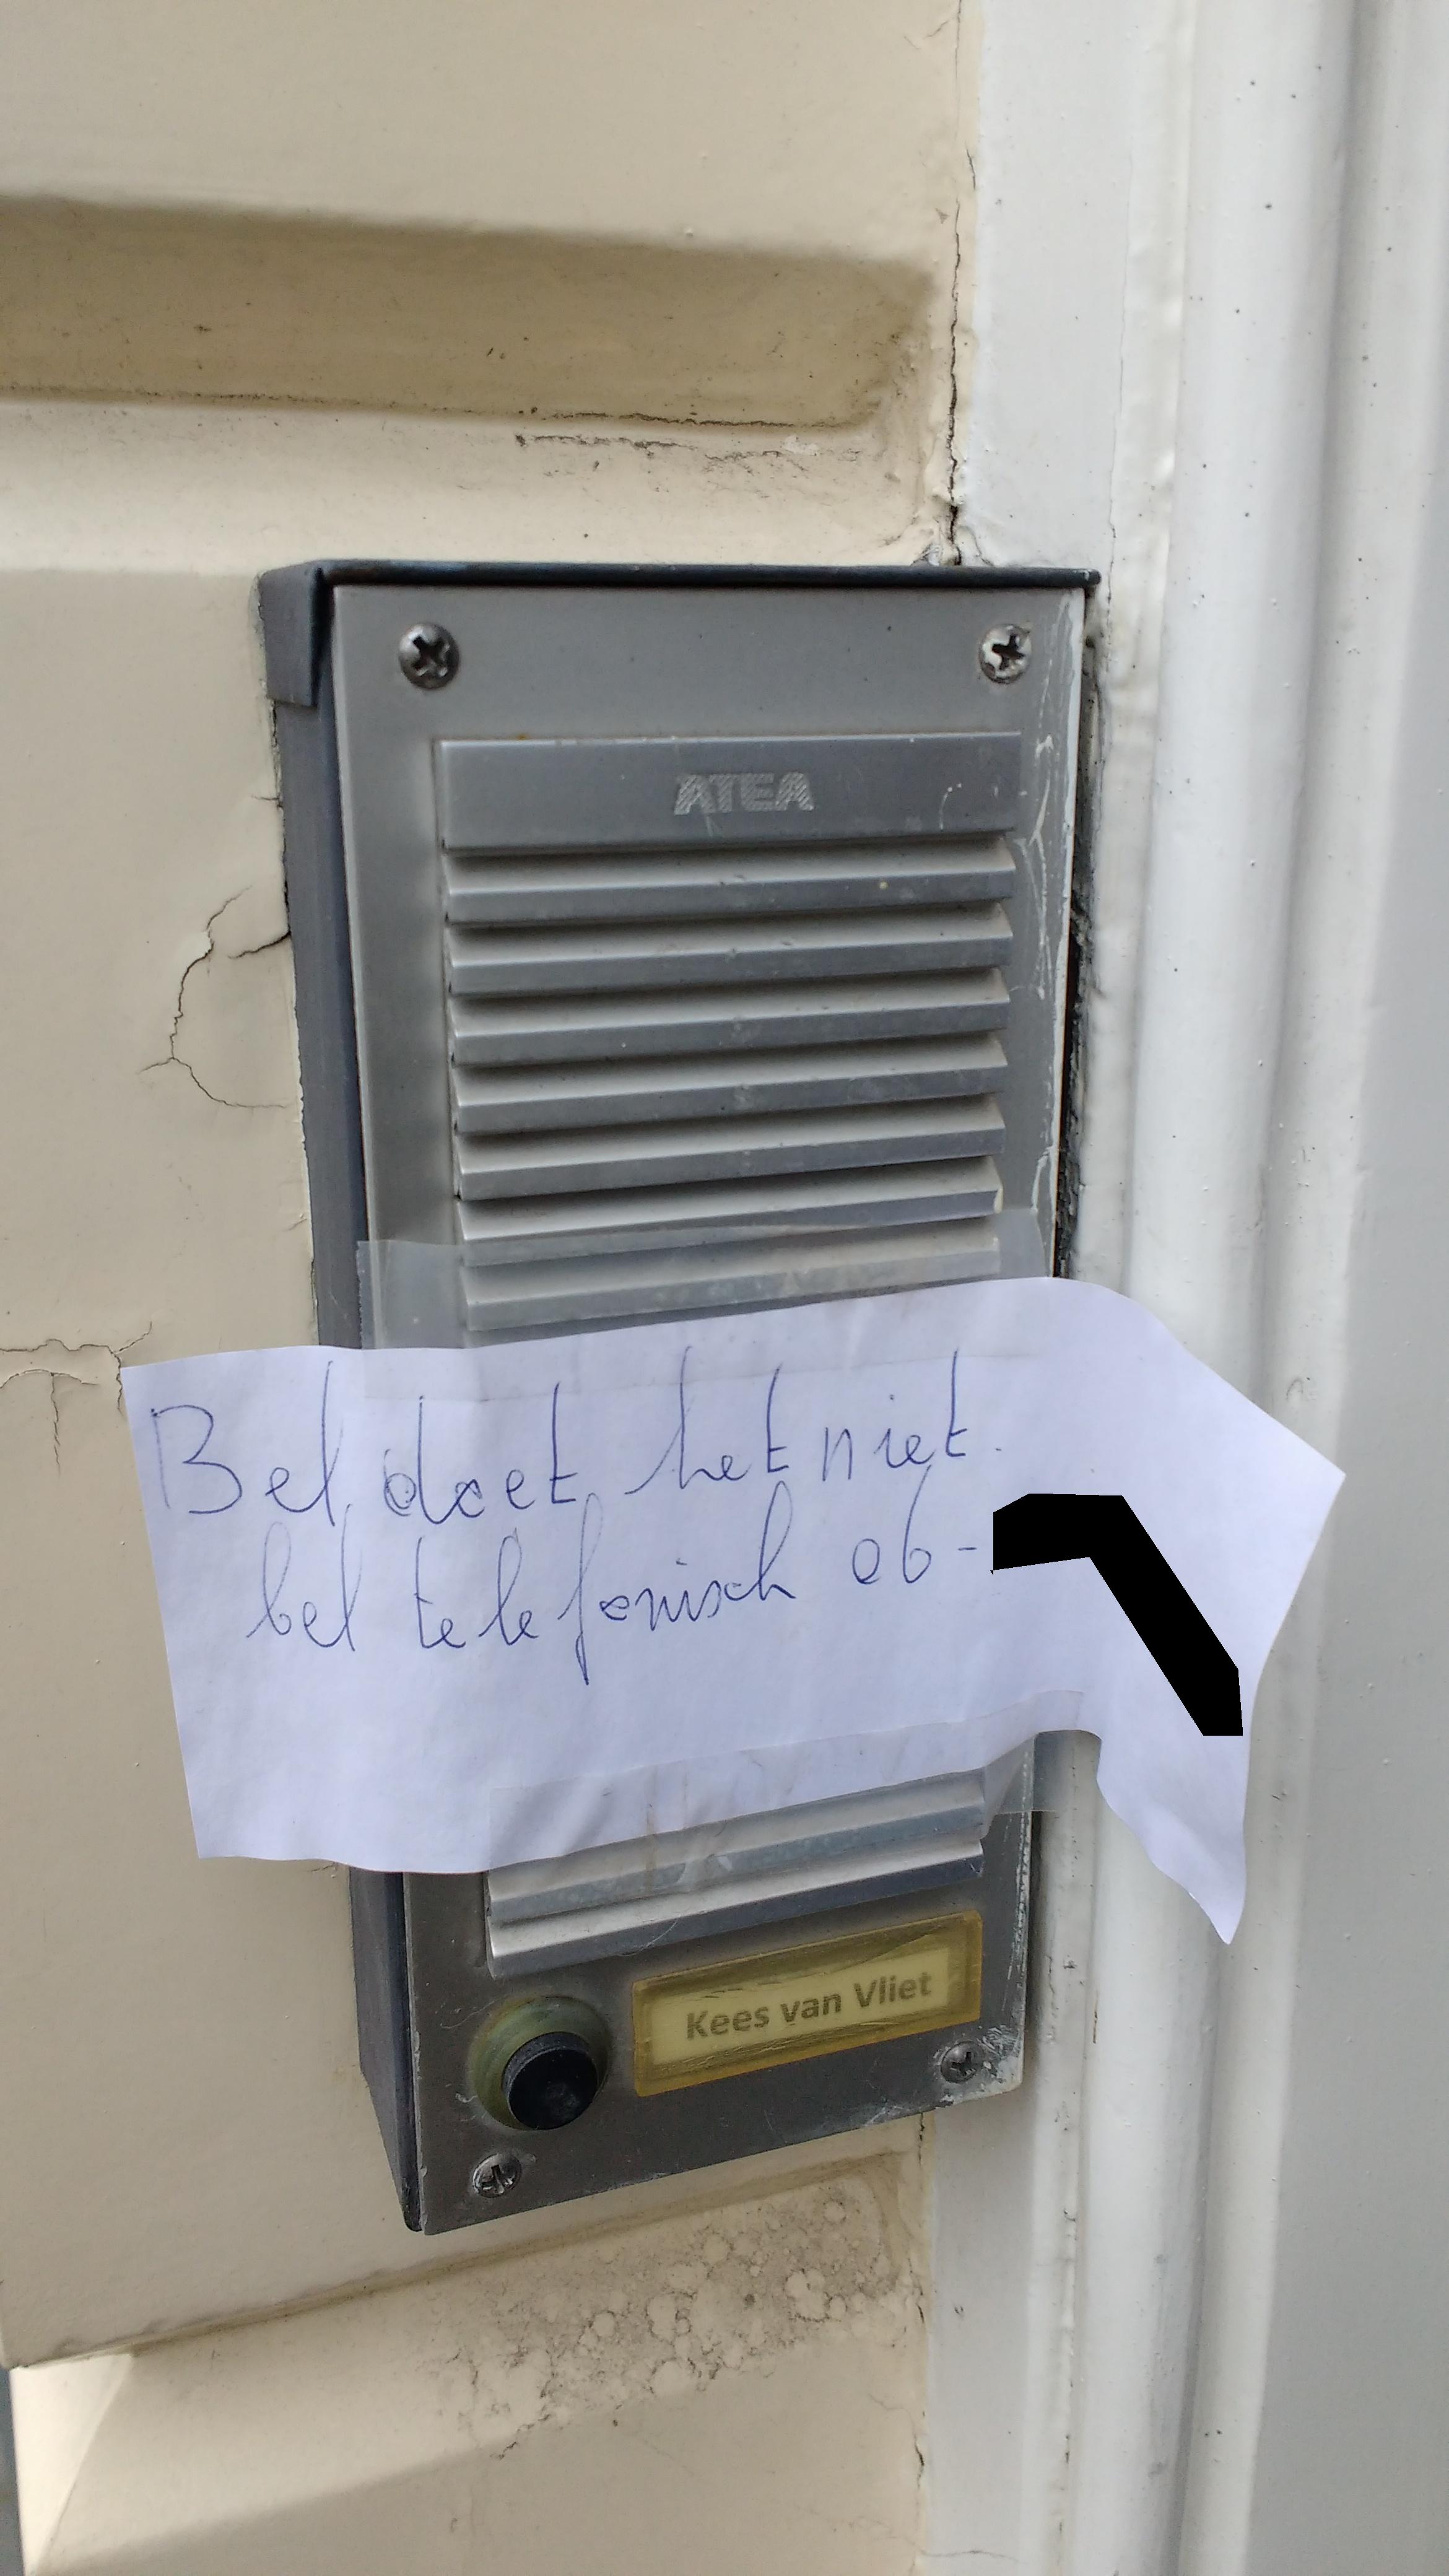 ATEA
Bel doet het niet.
bel telefonisch 06-
Kees van Vliet